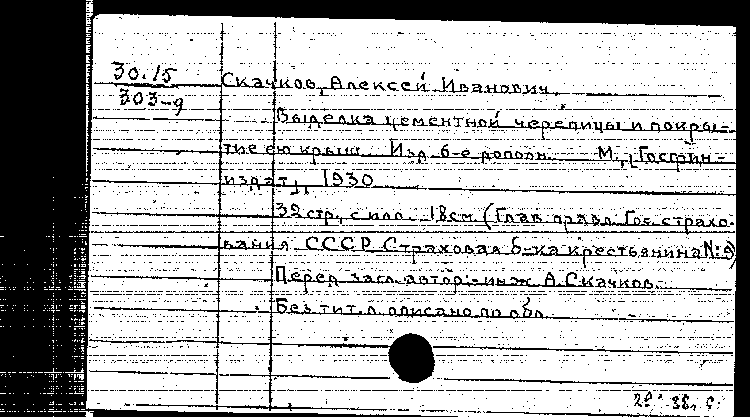 30.15
303-9
Скачков, Алексей Иванович.
Выделка цементной черепицы и покры-
тие ею крыш. Изд. 6-е дополн. М., [Госфин-
издат], 1930
32 стр., с илл. 18 см. (Глав. правл. Гос. страхо-
вания СССР. Страховая б-ка крестьянина №9)
Перед загл. автор: инж. А. Скачков.
Без тит. л. описано по обл.